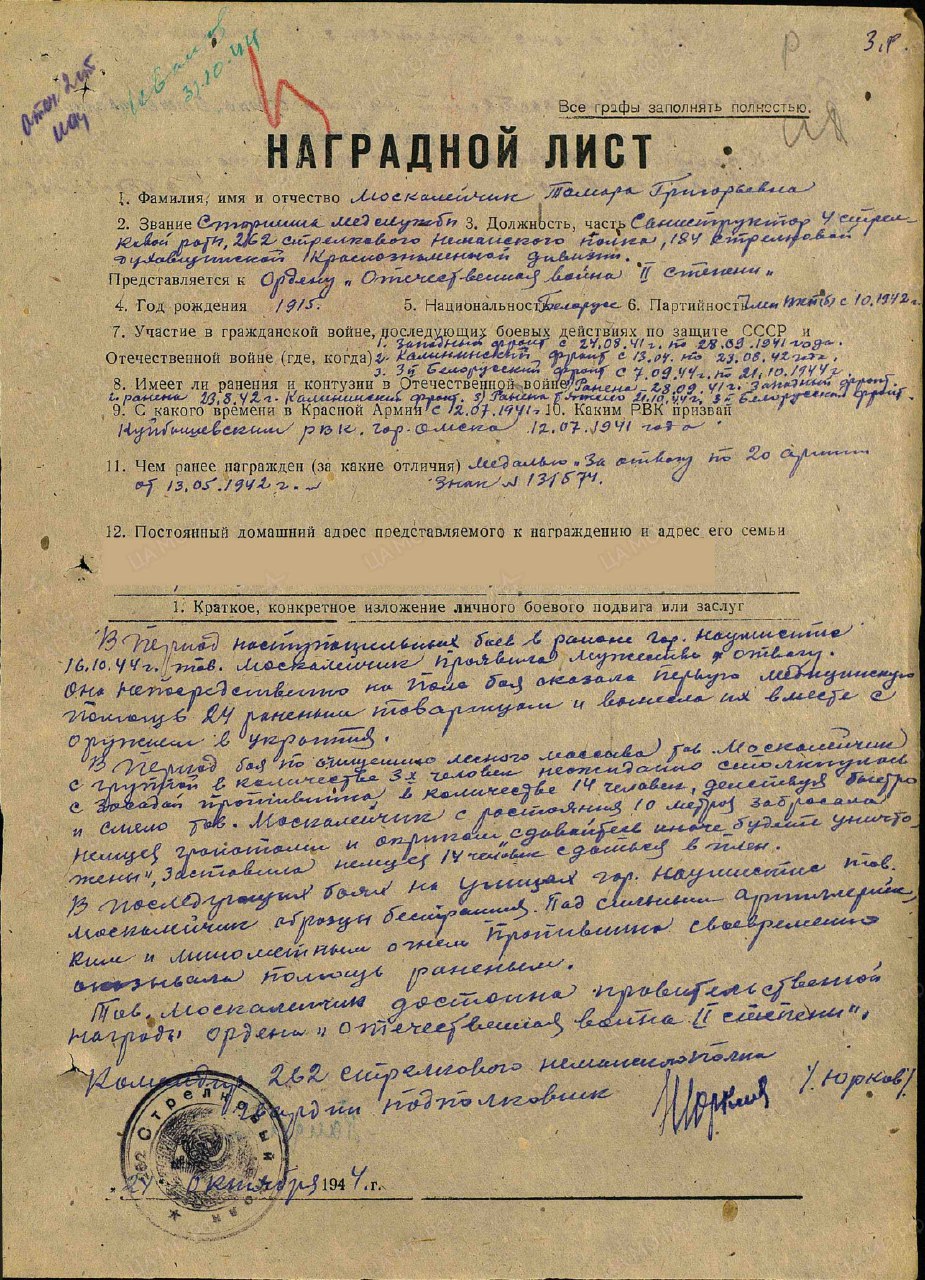 3.8.
31.10.44
Все графы заполнять полностью.
НАГРАДНОЙ ЛИСТ
1. Фамилия, имя и отчество Москалейчик Тамара Григорьевна
2. Звание Старшина медслужбы 3. Должность, часть Санинструктор 4 стрел-
ковой роты, 262 стрелкового Неманского полка, 184 стрелковой
Духовщинской Краснознаменной дивизии.
Представляется к Ордену „Отечественная война II степени"
4. Год рождения 1915. 5. Национальность Белорус 6. Партийность Член ВКП(б) с 10.1942 г.
7. Участие в гражданской войне, последующих боевых действиях по защите СССР и
1. Западный фронт с 24.08.41 г. по 28.09.1941 года.
Отечественной войне (где, когда) 2. Калининский фронт с 13.04. по 23.08.42 года.
3. 3й Белорусский фронт с 7.09.44 г. по 21.10.1944 г.
8. Имеет ли ранения и контузии в Отечественной войне Ранена 28.09.41 г. Западный фронт.
2. ранена 23.8.42 г. Калининский фронт. 3) Ранена тяжело 21.10.44 г. 3й Белорусский фронт.
9. С какого времени в Красной Армии с 12.07.1941 г. 10. Каким РВК призван
Куйбышевским РВК. гор. Омска 12.07.1941 года
11. Чем ранее награжден (за какие отличия) Медалью „За отвагу по 20 армии
от 13.05.1942 г. Знак № 131574.
12. Постоянный домашний адрес представляемого к награждению и адрес его семьи
1. Краткое, конкретное изложение личного боевого подвига или заслуг
В период наступательных боев в районе гор. Наумистис
16.10.44 г. тов. Москалейчик проявила мужество и отвагу.
Она непосредственно на поле боя оказала первую медицинскую
помощь 24 раненым товарищам и вынесла их вместе с
оружием в укрытия.
В период боя по очищению лесного массива тов. Москалейчик
с группой в количестве 3х человек неожиданно столкнулась
с засадой противника в количестве 14 человек, действуя быстро
и смело тов. Москалейчик с ростояния 10 метров забросала
немцев гранатами и окриком „сдавайтесь иначе будете уничто-
жены", заставила немцев 14 человек сдаться в плен.
В последующих боях на улицах гор. Наумистис тов.
Москалейчик образцы бестрашия. Под сильным артиллерийс-
ким и минометным огнем противника своевременно
оказывала помощь раненым.
Тов. Москалейчик достойна правительственной
награды ордена „Отечественная война II степени".
Командир 262 стрелкового неманского полка
Гвардии подполковник /Юрков/
262 Стрелковый
24 октября 1944 г.